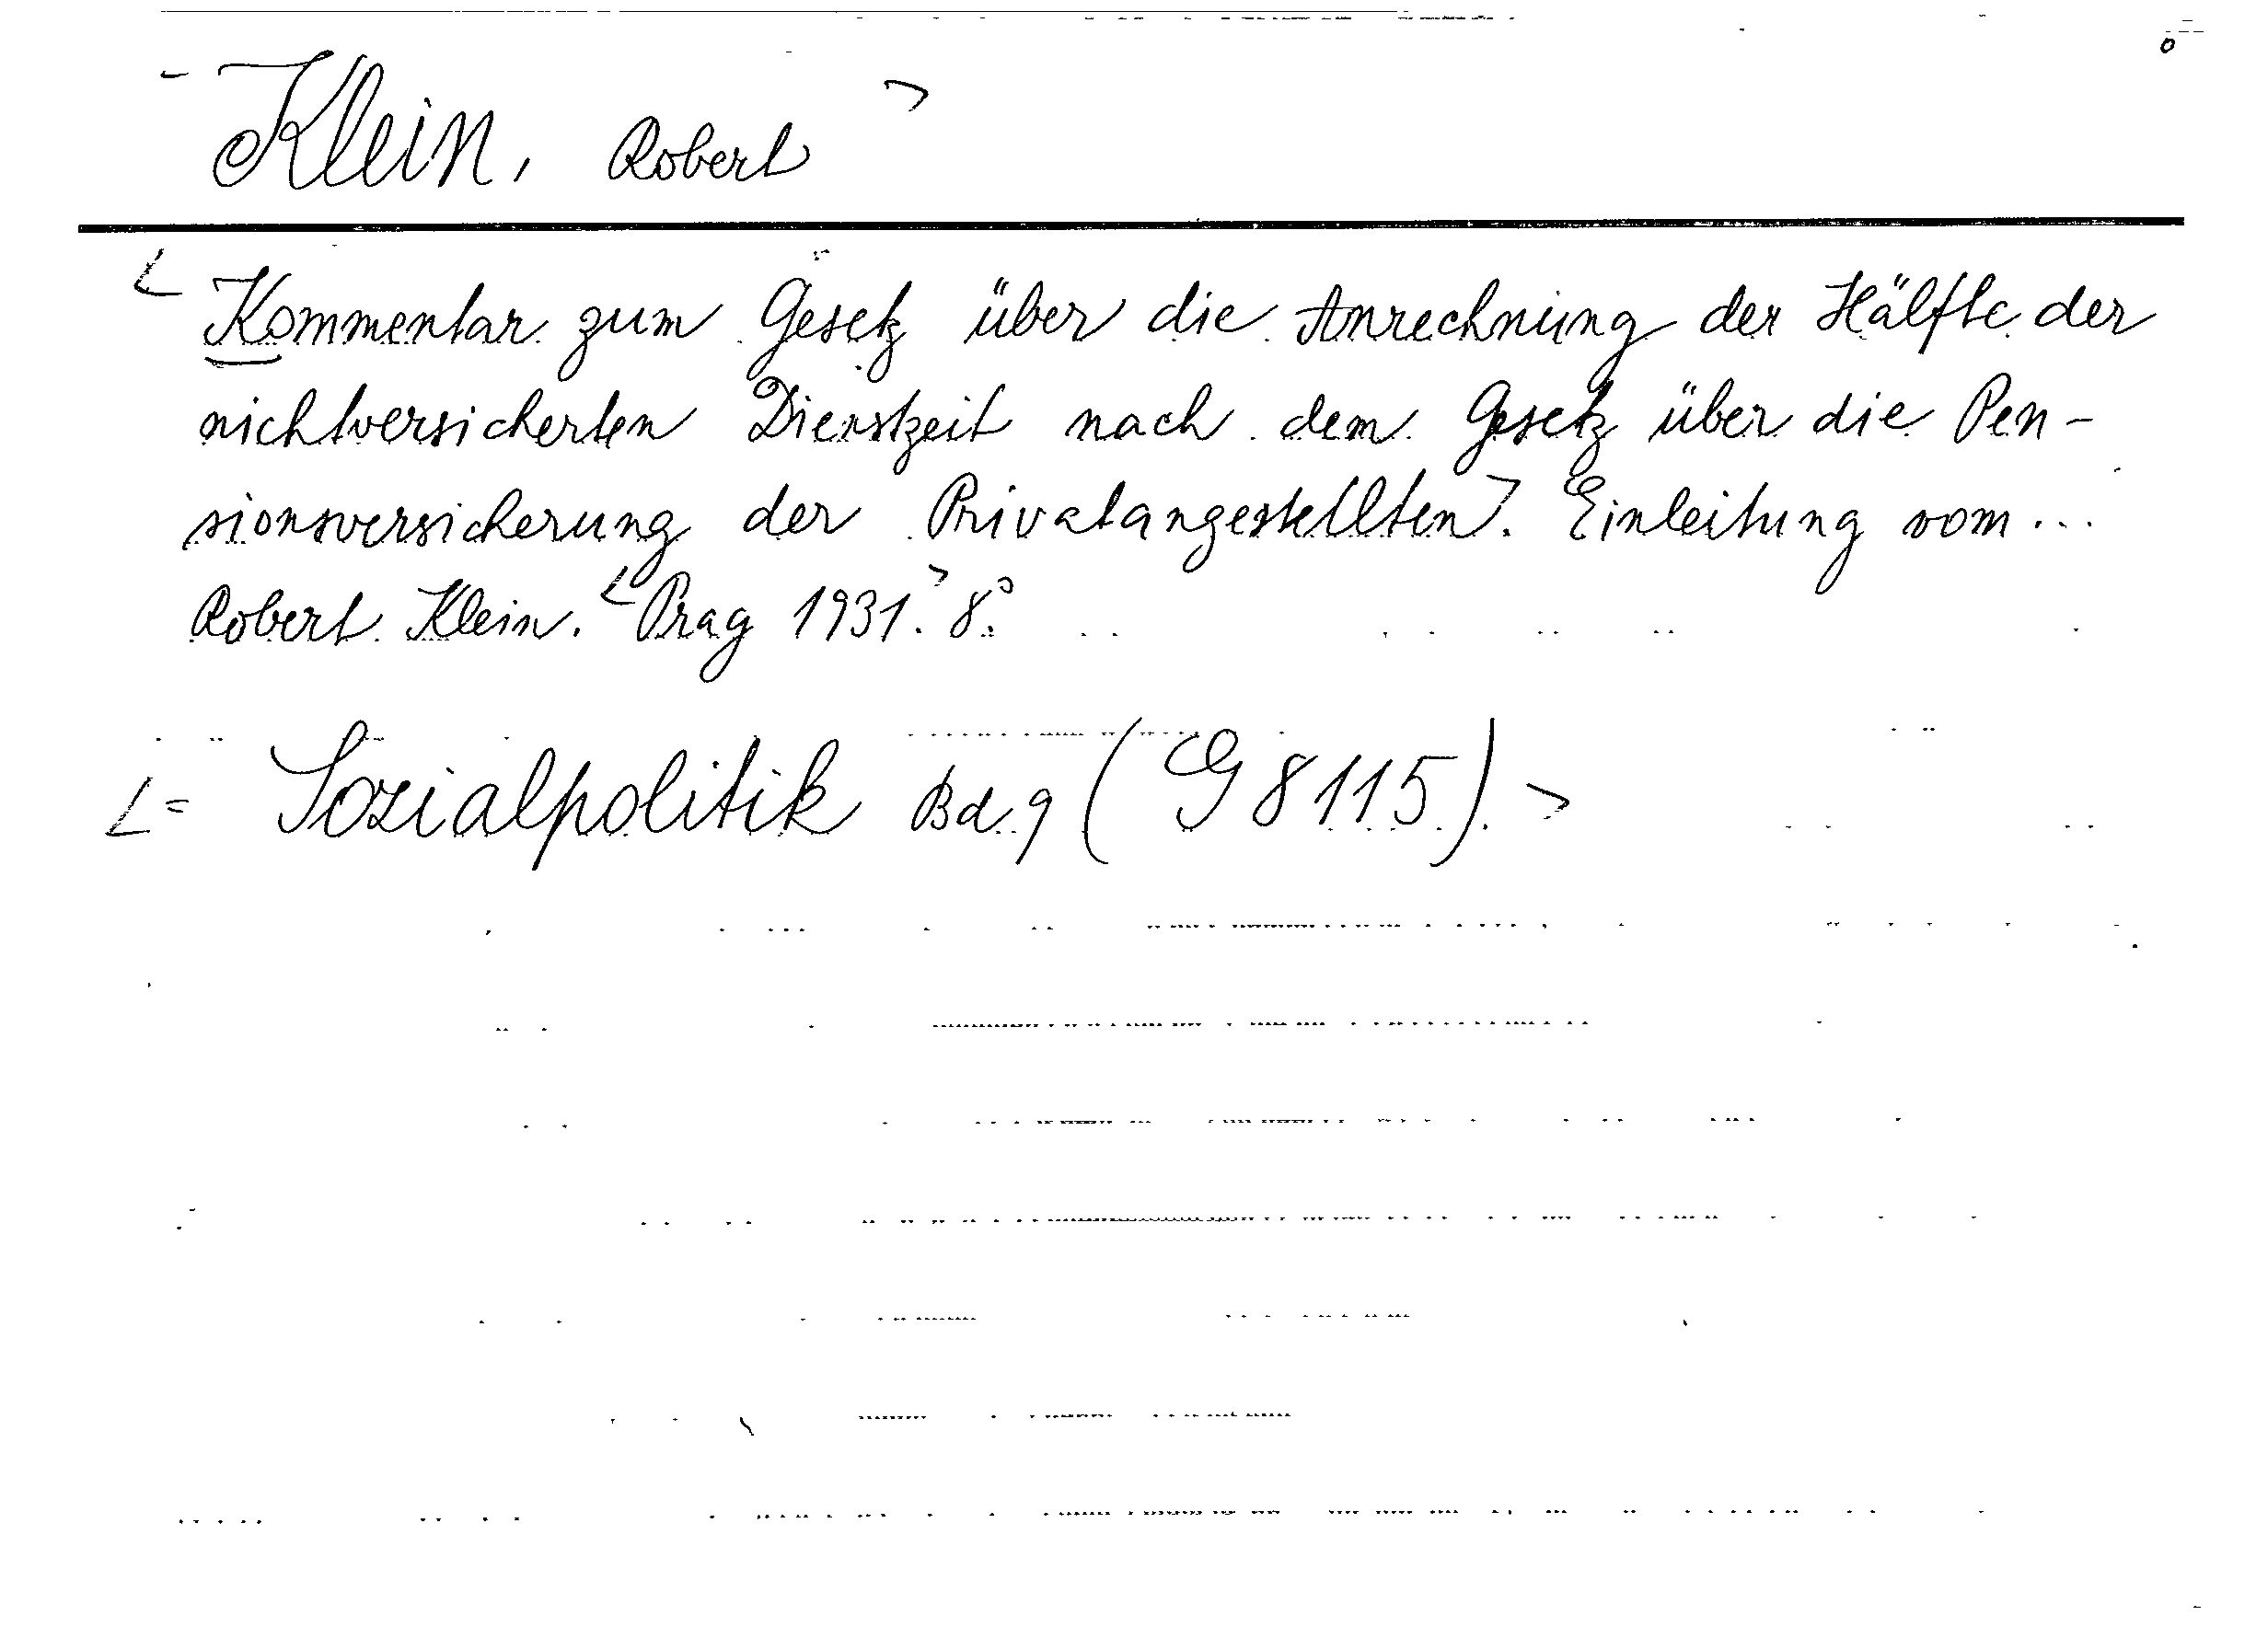 Klein, Robert
Kommentar zum Gesetz über die Anrechnung der Hälfte der
nichtversicherten Dienstzeit nach dem Gesetz über die Pen-
sionsversicherung der Privatangestellten. Einleitung vom...
Robert Klein. Prag 1931. 8°
= Sozialpolitik Bd. 9 (G 8115)